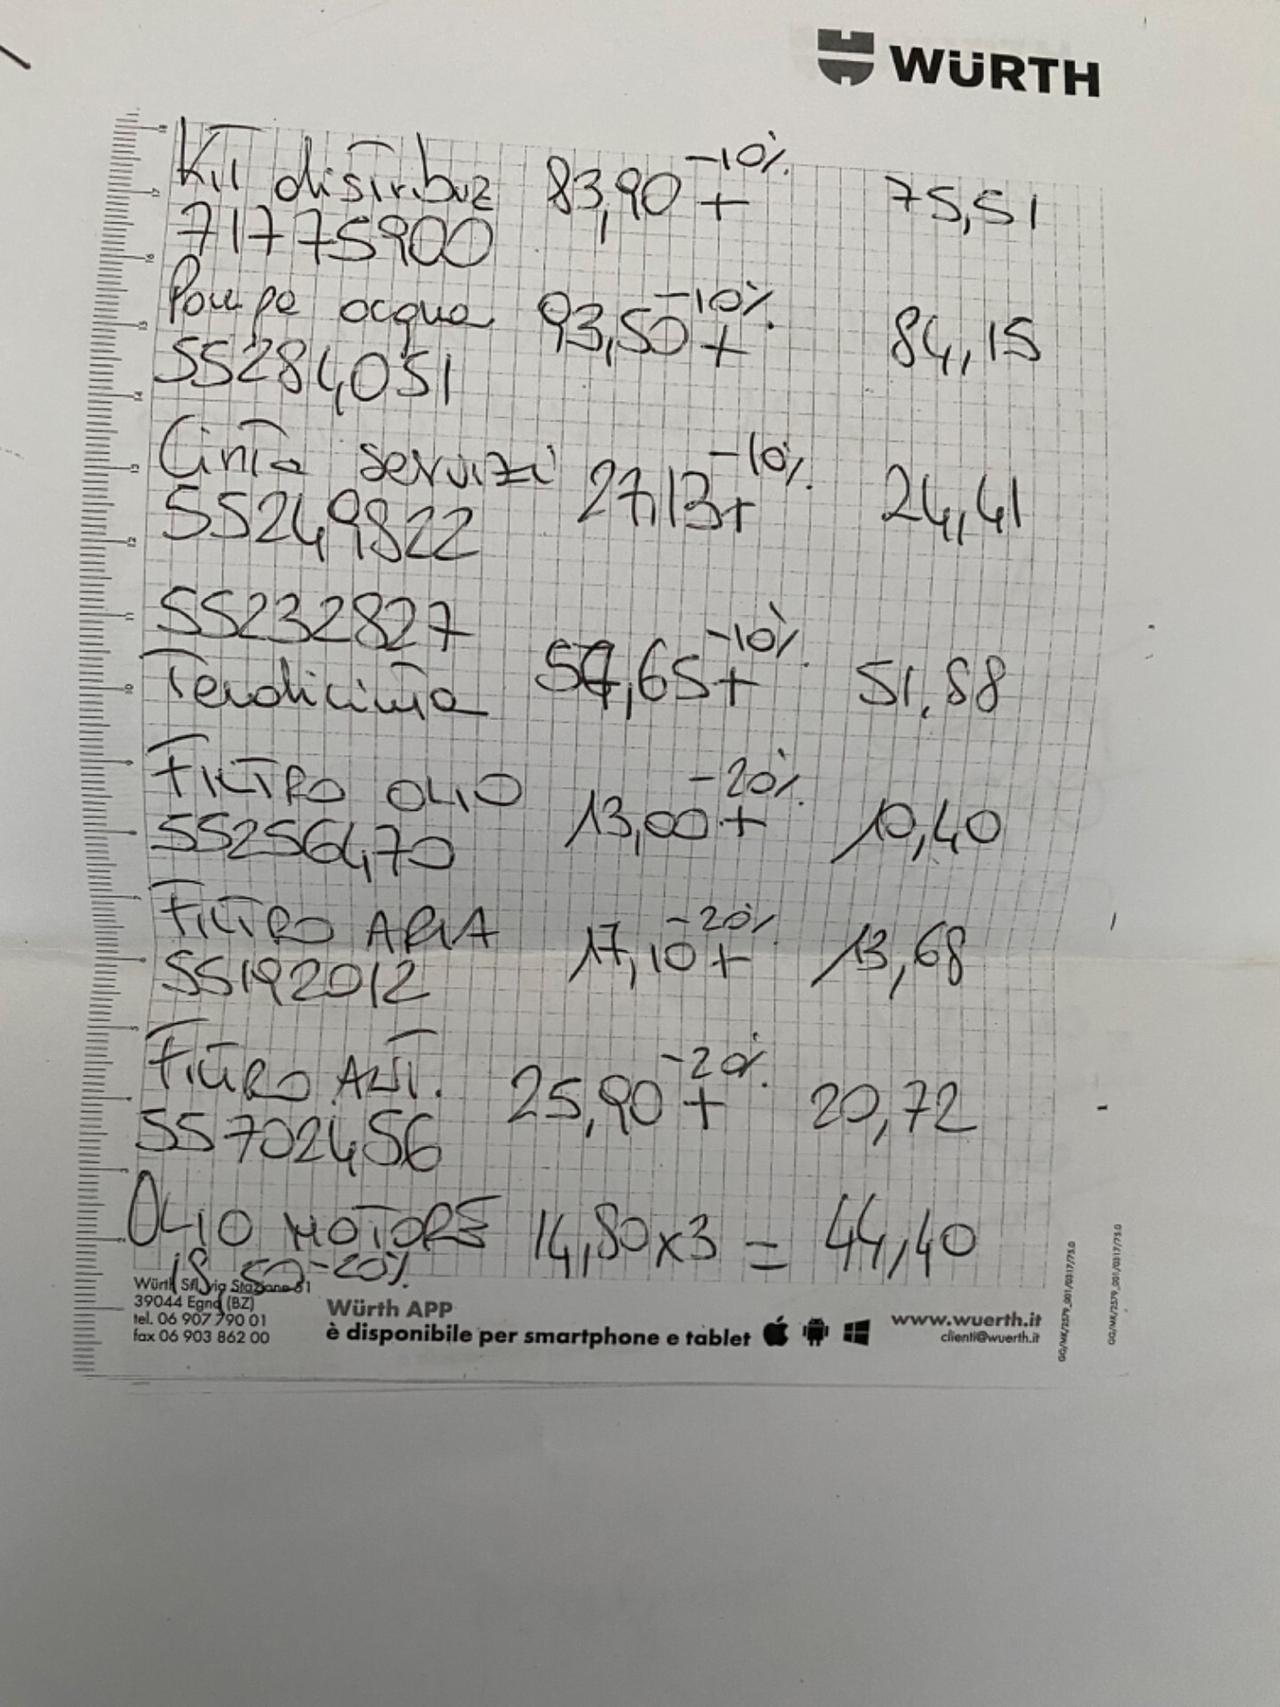 WÜRTH
Kit distribuz 83,90 -10% + 75,51
71775900
Pompa acqua 93,50 -10% + 84,15
55284051
Cinta servizi 27,13 -10% + 24,41
55249822
55232827
Tendicinta 57,65 -10% + 51,88
FILTRO OLIO 13,00 -20% + 10,40
55256470
FILTRO ARIA 17,10 -20% + 13,68
55192012
FILTRO ANT. 25,90 -20% + 20,72
55702456
OLIO MOTORE 14,80 x 3 = 44,40
18,50 -20%
Würth Srl, via Stazione 51
39044 Egna (BZ)
tel. 06 907 790 01
fax 06 903 862 00
Würth APP
è disponibile per smartphone e tablet
www.wuerth.it
clienti@wuerth.it
GG/MK/2579_001/0317/75.0
GG/MK/2579_001/0317/75.0